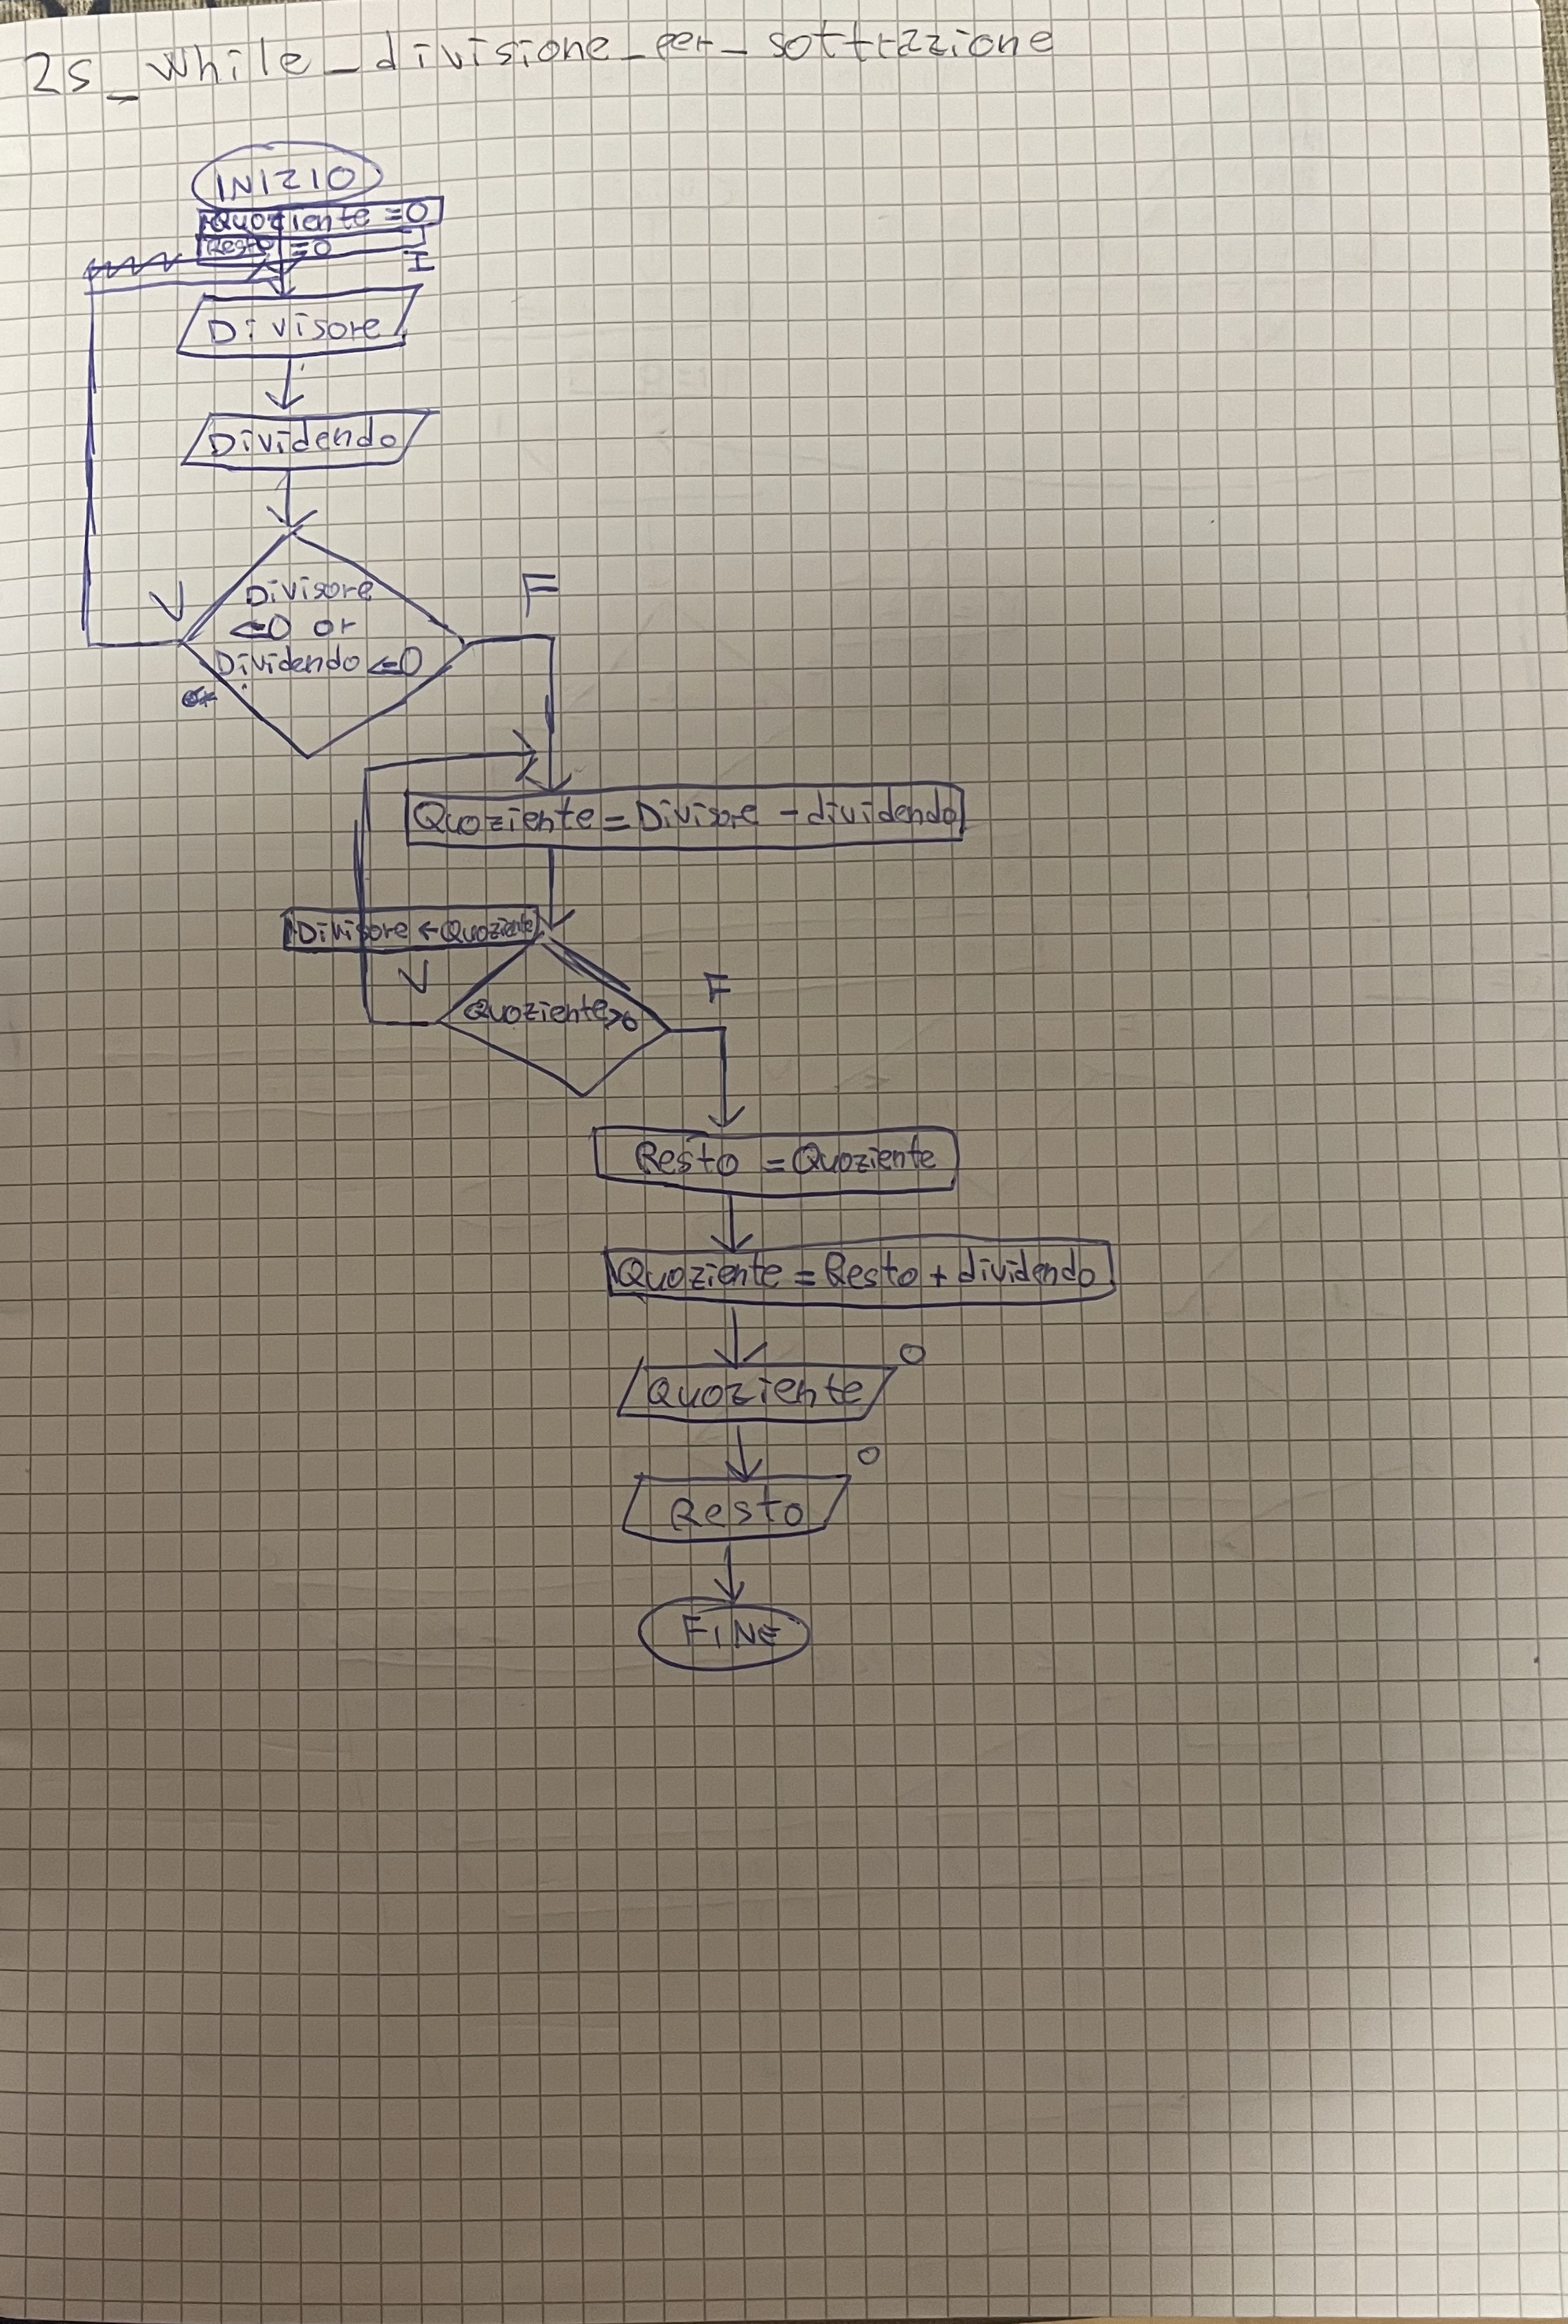 2S_While_divisione_per_sottrazzione
INIZIO
Quoziente =0
Resto =0
I
Divisore
Dividendo
V
F
Divisore
<=0 or
Dividendo <=0
Quoziente = Divisore - dividendo
Divisore ← Quoziente
V
F
Quoziente>0
Resto = Quoziente
Quoziente = Resto + dividendo
O
Quoziente
O
Resto
FINE